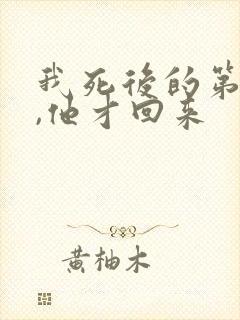 我死后的第
,他才回来
黄柚木